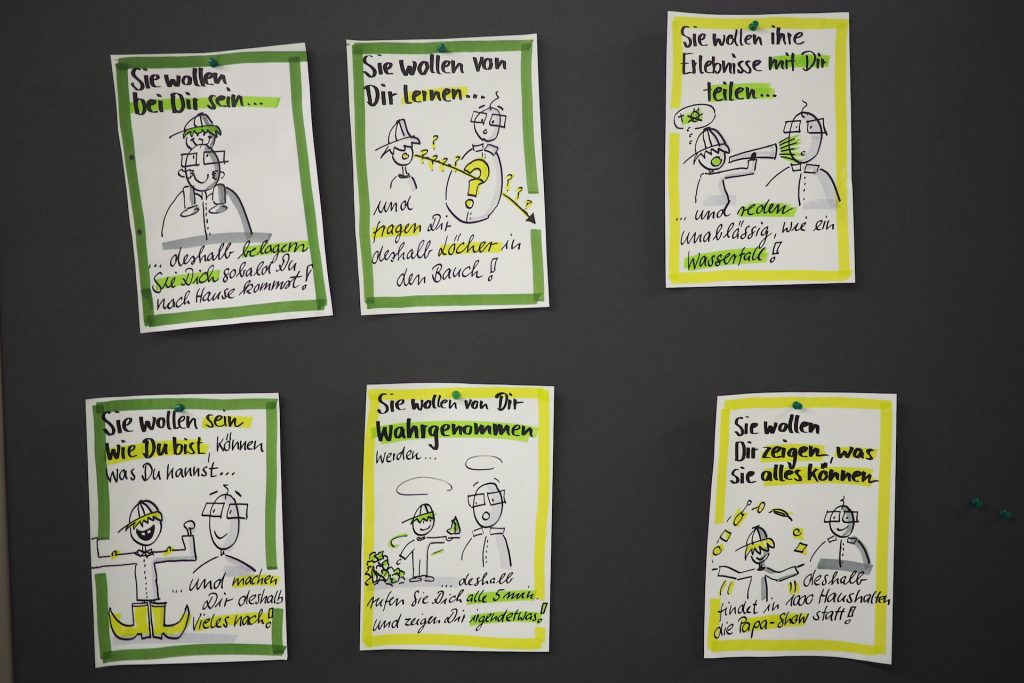 Sie wollen
bei Dir sein...
... deshalb belagern
Sie Dich sobald Du
nach Hause kommst!
Sie wollen von
Dir Lernen...
? ? ? ?
?
? ? ?
und
fragen Dir
deshalb Löcher in
den Bauch!
Sie wollen ihre
Erlebnisse mit Dir
teilen...
... und reden
unablässig, wie ein
Wasserfall!
Sie wollen sein
wie Du bist, können
was Du kannst...
... und machen
Dir deshalb
vieles nach!
Sie wollen von Dir
Wahrgenommen
werden...
... deshalb
rufen Sie Dich alle 5 min.
und zeigen Dir irgendetwas!
Sie wollen
Dir zeigen, was
Sie alles können
deshalb
findet in 1000 Haushalten
die Papa-Show statt!